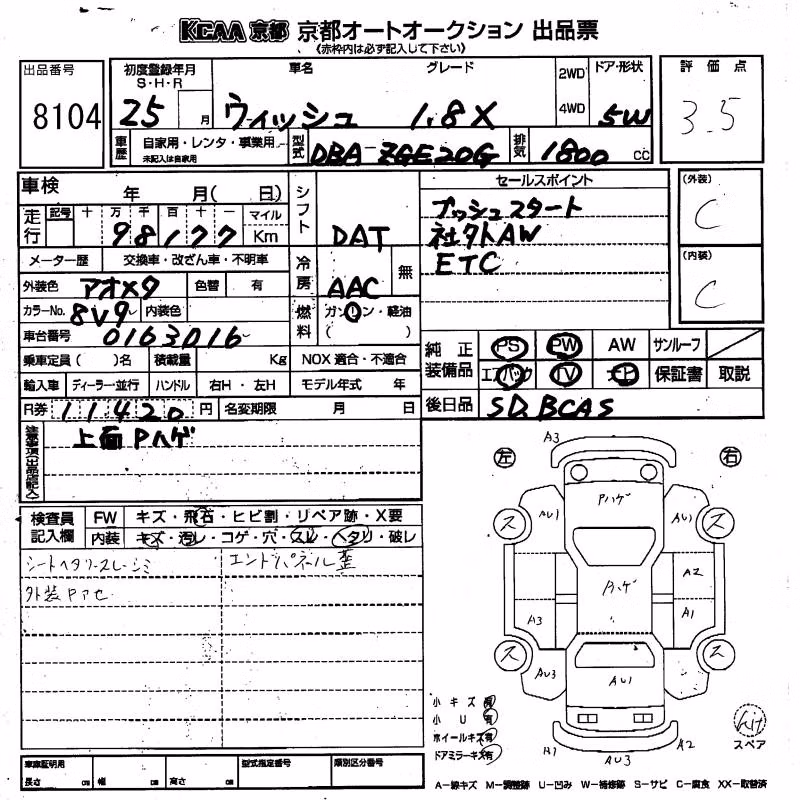 KCAA 京都 京都オートオークション 出品票
《赤枠内は必ず記入して下さい》
出品番号 8104
初度登録年月 S・H・R 25 月
車名 ウィッシュ
グレード 1.8X
2WD 4WD
ドア・形状 5W
評価点 3.5
車歴 自家用・レンタ・事業用 未記入は自家用
型式 DBA-ZGE20G
排気 1800 cc
車検 年 月( 日)
シフト DAT
セールスポイント
プッシュスタート
社外AW
ETC
(外装) C
(内装) C
走行 記号 十 万 千 百 十 一 マイル Km
98177
メーター歴 交換車・改ざん車・不明車
冷房 AAC 無
外装色 アオメタ 色替 有
カラーNo. 8V9 内装色
燃料 ガソリン・軽油 ( )
車台番号 0163016
乗車定員 ( )名 積載量 Kg NOX 適合・不適合
輸入車 ディーラー・並行 ハンドル 右H・左H モデル年式 年
R券 11420 円 名変期限 月 日
純正装備品 PS PW AW サンルーフ
エアバック TV ナビ 保証書 取説
後日品 SD.BCAS
注意事項(出品店記入) 上面Pハゲ
検査員記入欄 FW キズ・飛石・ヒビ割・リペア跡・X要
内装 キズ・汚レ・コゲ・穴・スレ・ヘタリ・破レ
シートヘタリ・スレ・シミ エンドパネル歪
外装Pアセ
左 右
A3
Pハゲ
AU1 AU1
ス ス
A2
Pハゲ
A3 A1
ス ス
AU3 AU1
A1 AU3 A2
小キズ 有
小U 有
ホイールキズ 有
ドアミラーキズ 有
kit
スペア
車庫証明用 長さ cm 幅 cm 高さ cm 型式指定番号 類別区分番号
A－線キズ M－調整跡 U－凹み W－補修跡 S－サビ C－腐食 XX－取替済